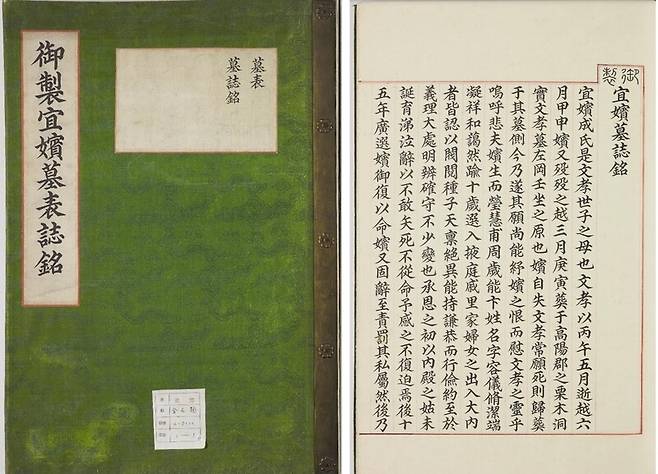 御製宜嬪墓表誌銘
墓表
墓誌銘
御製
宜嬪墓誌銘
宜嬪成氏是文孝世子之母也文孝以丙午五月逝越六
月甲申嬪又歿歿之越三月庚寅葬于高陽郡之栗木洞
實文孝墓左岡壬坐之原也嬪自失文孝常願死則歸葬
于其墓側今乃遂其願尚能紓嬪之恨而慰文孝之靈乎
嗚呼悲夫嬪生而瑩慧甫周歲能卞姓名字容儀脩潔端
凝祥和藹然踰十歲選入掖庭戚里家婦女之出入大內
者皆認以閥閱種子天稟絕異能持謙恭而行儉約至於
義理大處明辨確守不少變也承恩之初以內殿之姑未
誕育涕泣辭以不敢矢死不從命予感之不復迫焉後十
五年廣選嬪御復以命嬪又固辭至責罰其私屬然後乃